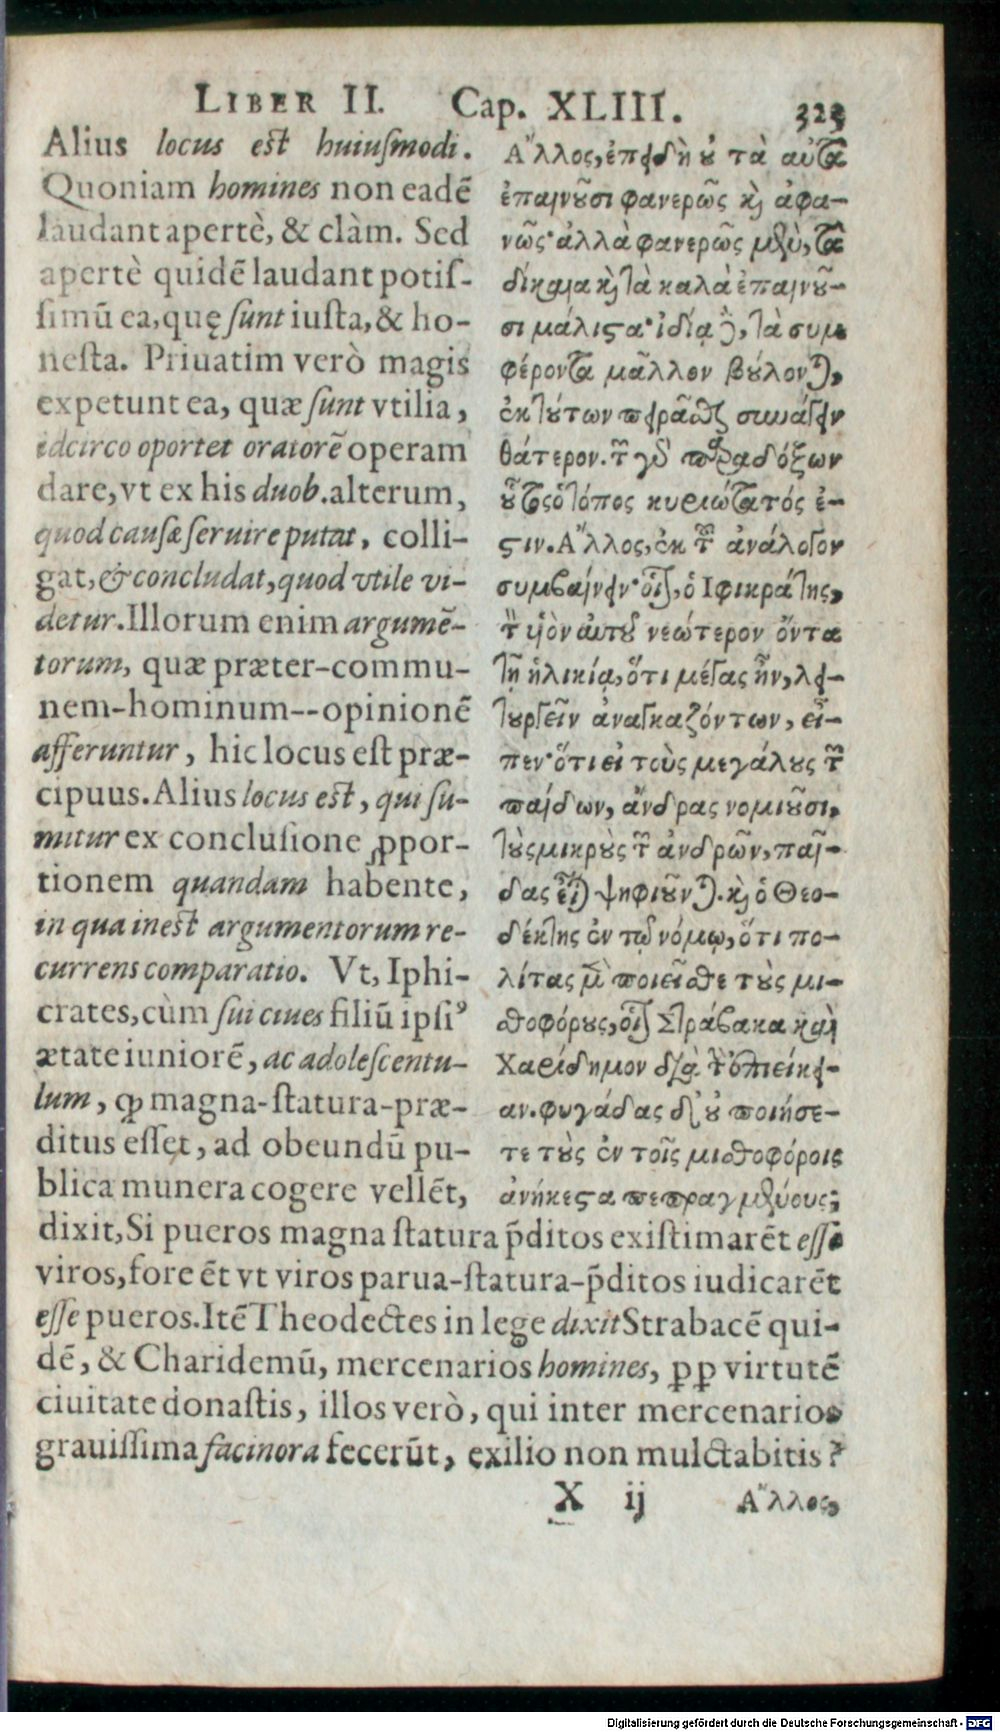 LIBER II. Cap. XLIII. 323
Alius locus est huiusmodi.
Quoniam homines non eadē
laudant apertè, & clàm. Sed
apertè quidē laudant potiſ-
ſimū ea, quę ſunt iuſta, & ho-
neſta. Priuatim verò magis
expetunt ea, quæ ſunt vtilia,
idcirco oportet oratorē operam
dare, vt ex his duob. alterum,
quod cauſæ ſeruire putat, colli-
gat, & concludat, quod vtile vi-
detur. Illorum enim argumē-
torum, quæ præter-commu-
nem-hominum--opinionē
afferuntur, hic locus eſt præ-
cipuus. Alius locus est, qui ſu-
mitur ex concluſione ꝓpor-
tionem quandam habente,
in qua inest argumentorum re-
currens comparatio. Vt, Iphi-
crates, cùm ſui ciues filiū ipſiꝰ
ætate iuniorē, ac adoleſcentu-
lum, ꝙ magna-ſtatura-præ-
ditus eſſet, ad obeundū pu-
blica munera cogere vellēt,
Α῎λλος, ἐπειδὴ οὐ τὰ αὐτὰ
ἐπαινοῦσι φανερῶς κ̀ ἀφα-
νῶς· ἀλλὰ φανερῶς μὲν, τὰ
δίκαια κ̀ τὰ καλὰ ἐπαινοῦ-
σι μάλιστα· ἰδίᾳ δὲ, τὰ συμ-
φέροντα μᾶλλον βούλονται,
ἐκ τούτων πειρᾶσθαι συνάγειν
θάτερον. τῶν γὰρ παραδόξων
οὗτος ὁ τόπος κυριώτατός ἐ-
στιν. Α῎λλος, ἐκ τῶν ἀνάλογον
συμβαίνειν· οἷον, ὁ Ιφικράτης,
τὸν υἱὸν αὐτοῦ νεώτερον ὄντα
τῇ ἡλικίᾳ, ὅτι μέγας ἦν, λει-
τουργεῖν ἀναγκαζόντων, εἶ-
πεν· ὅτι εἰ τοὺς μεγάλους τῶν
παίδων, ἄνδρας νομιοῦσι,
τοὺς μικροὺς τῶν ἀνδρῶν, παῖ-
δας εἶναι ψηφιοῦνται. κ̀ ὁ Θεο-
δέκτης ἐν τῷ νόμῳ, ὅτι πο-
λίτας μὲν ποιεῖσθε τοὺς μι-
σθοφόρους, οἷον Στράβακα καὶ
Χαρίδημον διὰ τὴν ἐπιείκει-
αν. φυγάδας δ' οὐ ποιήσε-
τε τοὺς ἐν τοῖς μισθοφόροις
ἀνήκεστα πεπραγμένους;
dixit, Si pueros magna ſtatura p̄ditos exiſtimarēt eſſe
viros, fore ēt vt viros parua-ſtatura-p̄ditos iudicarēt
eſſe pueros. Itē Theodectes in lege dixit Strabacē qui-
dē, & Charidemū, mercenarios homines, ꝓp virtutē
ciuitate donaſtis, illos verò, qui inter mercenarios
grauiſſima facinora fecerūt, exilio non mulctabitis?
X ij Α῎λλος,
Digitalisierung gefördert durch die Deutsche Forschungsgemeinschaft - DFG